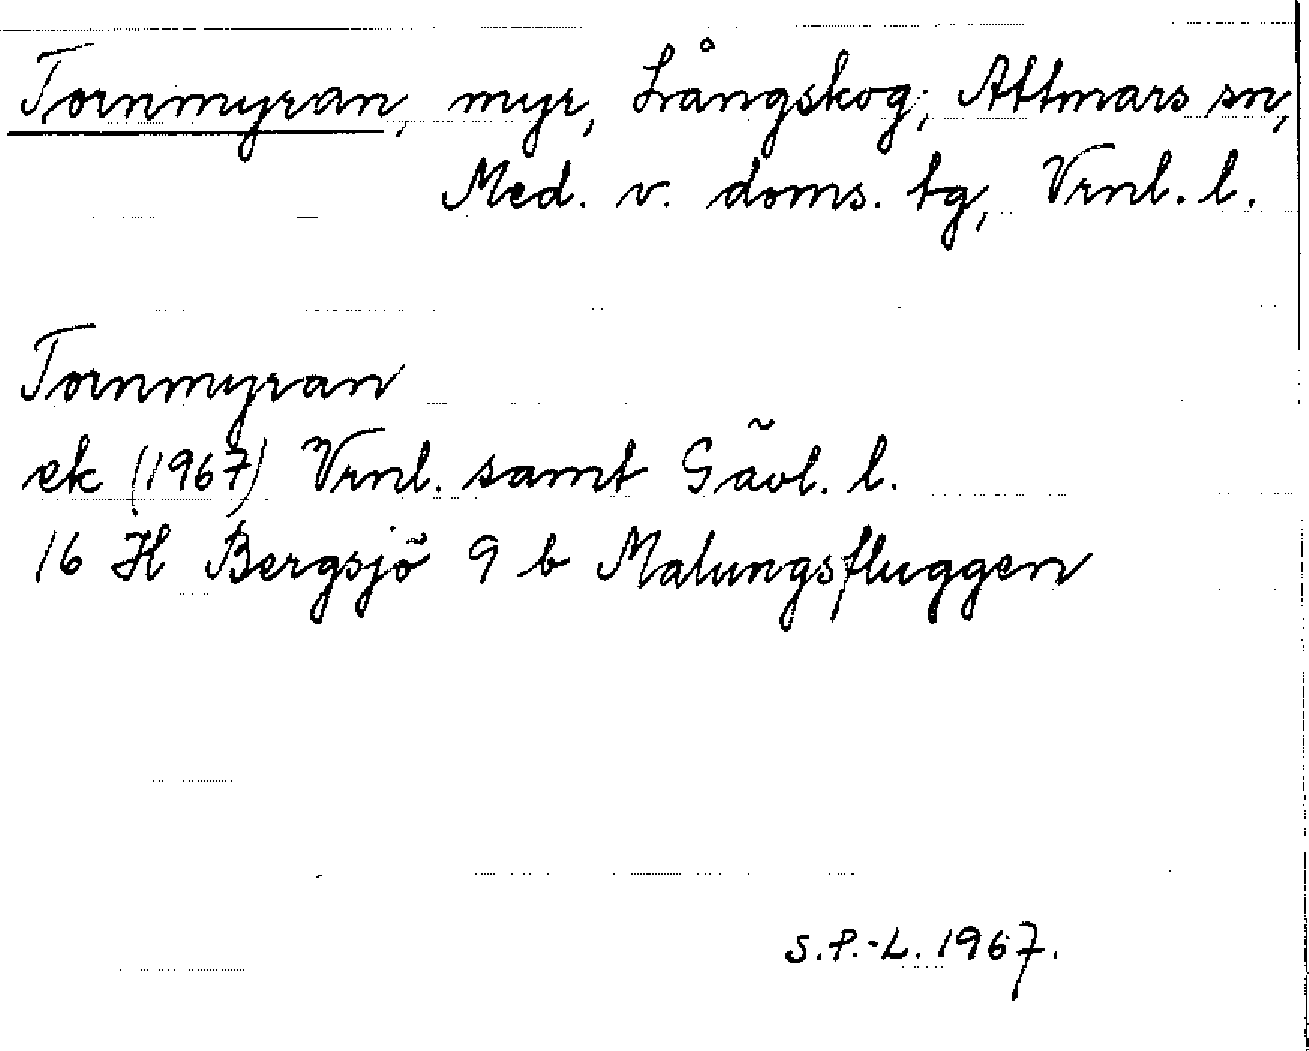 Tornmyran, myr, Långskog, Attmars sn,
Med. v. doms. tg, Vrnl. l.
Tornmyran
ek (1967) Vrnl. samt Gävl. l.
16 H Bergsjö 9 b Malungsfluggen
S.P.-L. 1967.